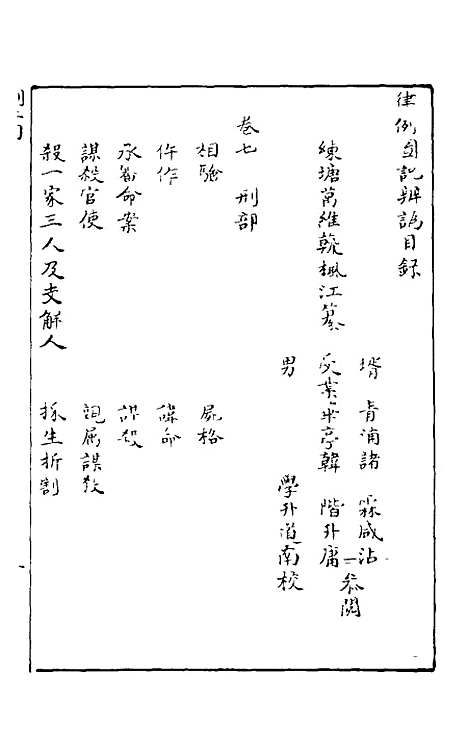 律例图說辨譌目錄
練塘萬維翰楓江纂
壻 青浦諸 霖咸沾
受業華亭韓 階升庸
仝叅閱
男 學升道南校
卷七 刑部
相驗 屍格
仵作 偉命
承審命案 謀殺
謀殺官使 親屬謀殺
殺一家三人及支解人 採生折割